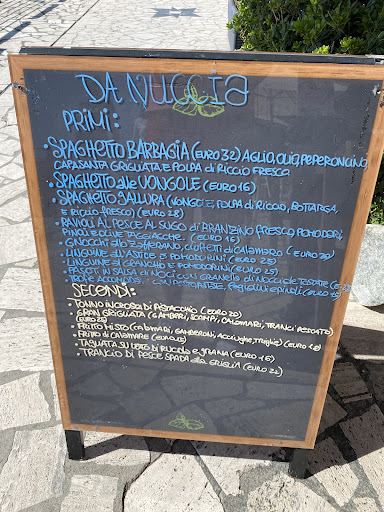 DA NUCCIA
PRIMI:
• SPAGHETTO BARBAGIA (EURO 32) AGLIO, OLIO, PEPERONCINO,
CAPASANTA GRIGLIATA E POLPA DI RICCIO FRESCO
• SPAGHETTO alle VONGOLE (EURO 16)
• SPAGHETTO GALLURA (VONGOLE, POLPA DI RICCIO, BOTTARGA,
E RICCIO FRESCO) (EURO 28)
• RAVIOLI AL PESCE AL SUGO DI BRANZINO FRESCO, POMODORI,
PINOLI E OLIVE TAGGIASCHE (EURO 16)
• GNOCCHI allo ZAFFERANO, CIUFFETTI DI CALAMARO (EURO 20)
• LINGUINE all'ASTICE E POMODORINI (EURO 25)
• LINGUINE al GRANCHIO E POMODORINI (EURO 25)
• FAGOTTI IN SALSA DI NOCI CON GRANELLA DI NOCCIOLE TOSTATE
CON fagiolini e pinoli (EURO 15)
SECONDI:
• TONNO IN CROSTA DI PISTACCHIO (EURO 20)
• GRAN GRIGLIATA (GAMBERI, SCAMPI, CALAMARI, TRANCI PESCATO)
(EURO 25)
• FRITTO MISTO (CALAMARI, GAMBERONI, ACCIUGHE, TRIGLIE) (EURO 18)
• FRITTO DI CALAMARI
• TAGLIATA SU LETTO DI RUCOLA E GRANA (EURO 16)
• TRANCIO DI PESCE SPADA alla GRIGLIA (EURO 22)